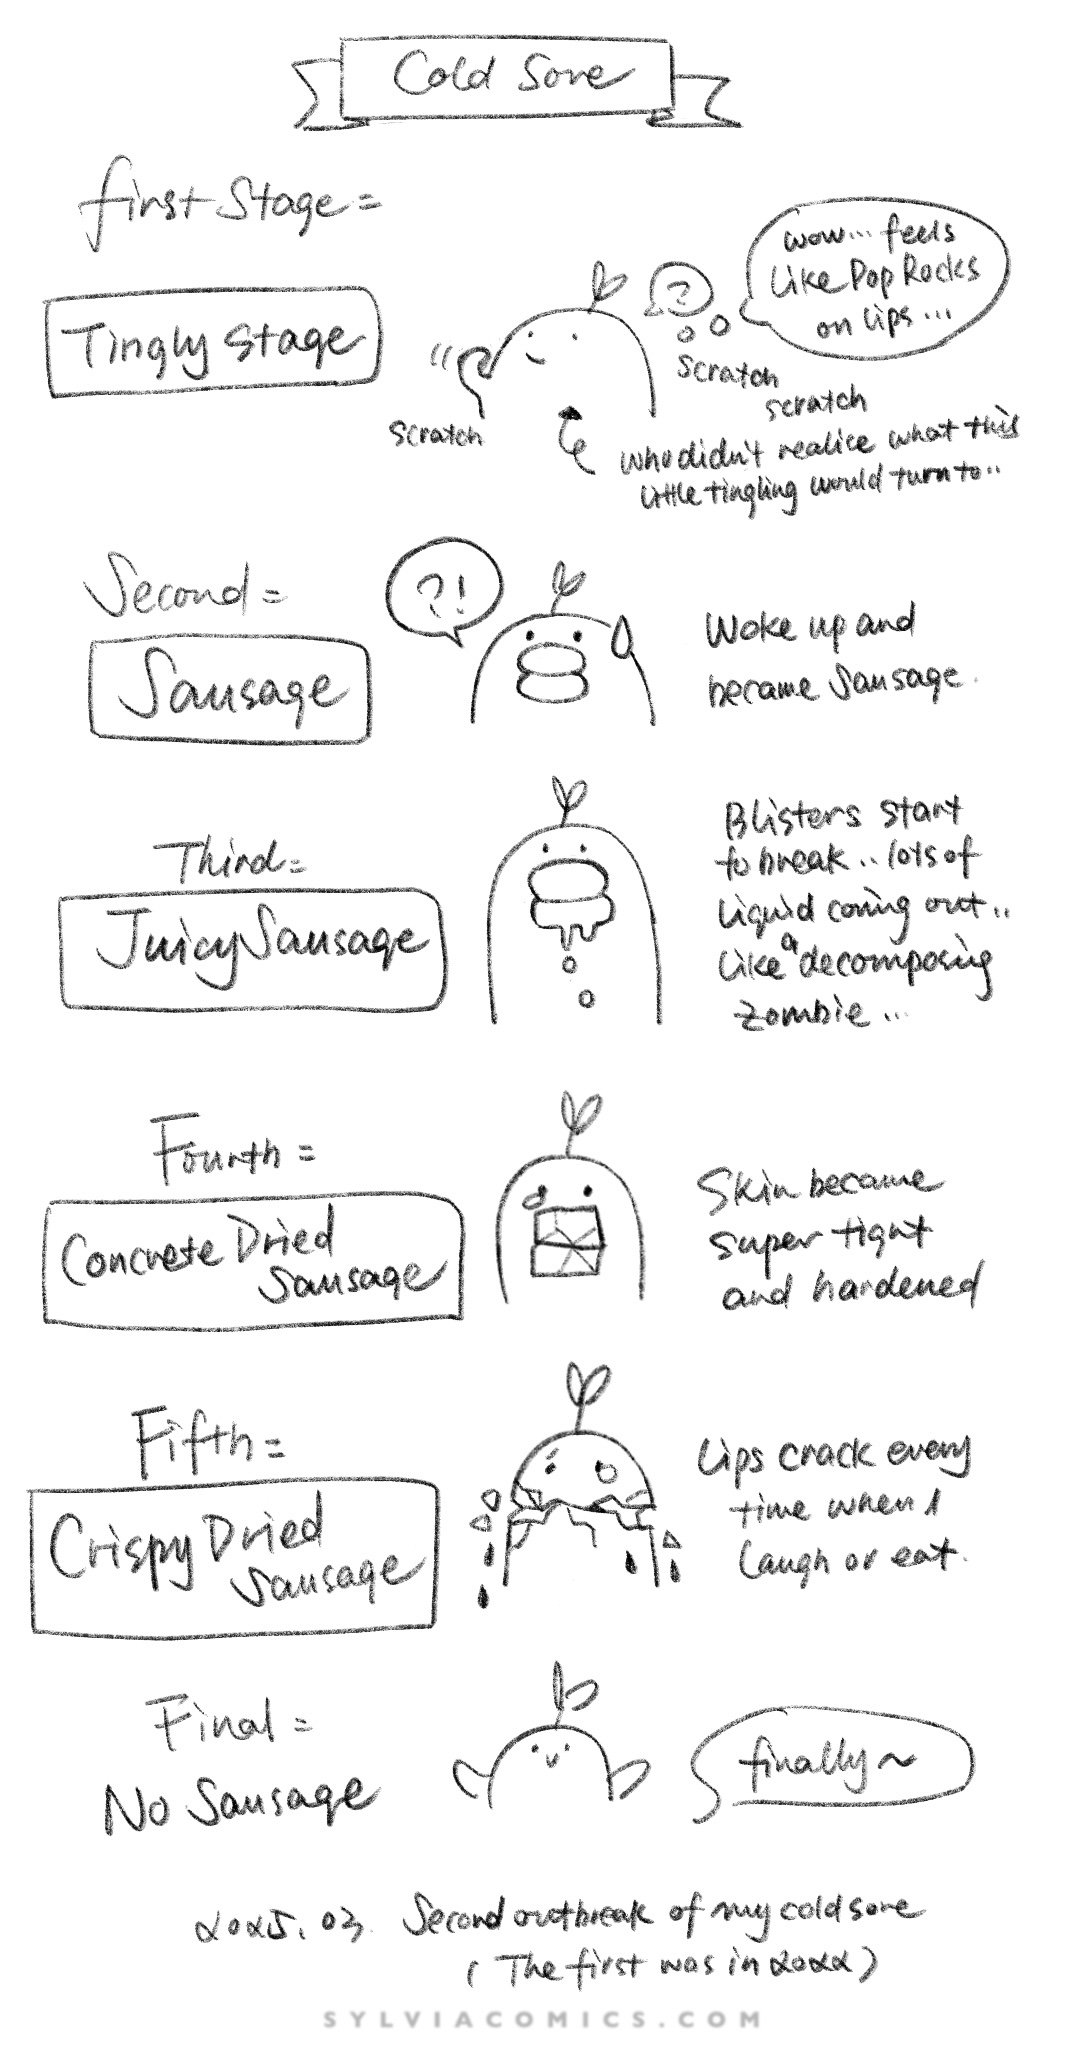 Cold Sore
First Stage =
Tingly Stage
?
wow... feels
like Pop Rocks
on lips...
scratch
scratch
scratch
who didn't realice what this
little tingling would turn to..
Second =
Sausage
?!
Woke up and
became Sausage.
Third =
Juicy Sausage
Blisters start
to break.. lots of
liquid coming out..
like a decomposing
zombie...
Fourth =
Concrete Dried
Sausage
Skin became
super tight
and hardened
Fifth =
Crispy Dried
Sausage
Lips crack every
time when I
laugh or eat.
Final =
No Sausage
finally~
2025.03. Second outbreak of my cold sore
(The first was in 2022)
SYLVIACOMICS.COM